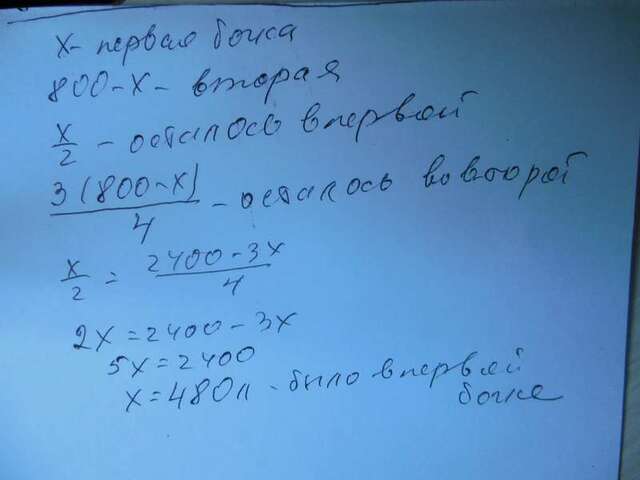 x - первая бочка
800-x - вторая
x/2 - осталось в первой
3(800-x)/4 - осталось во второй
x/2 = 2400-3x/4
2x=2400-3x
5x=2400
x=480л - было в первой
бочке